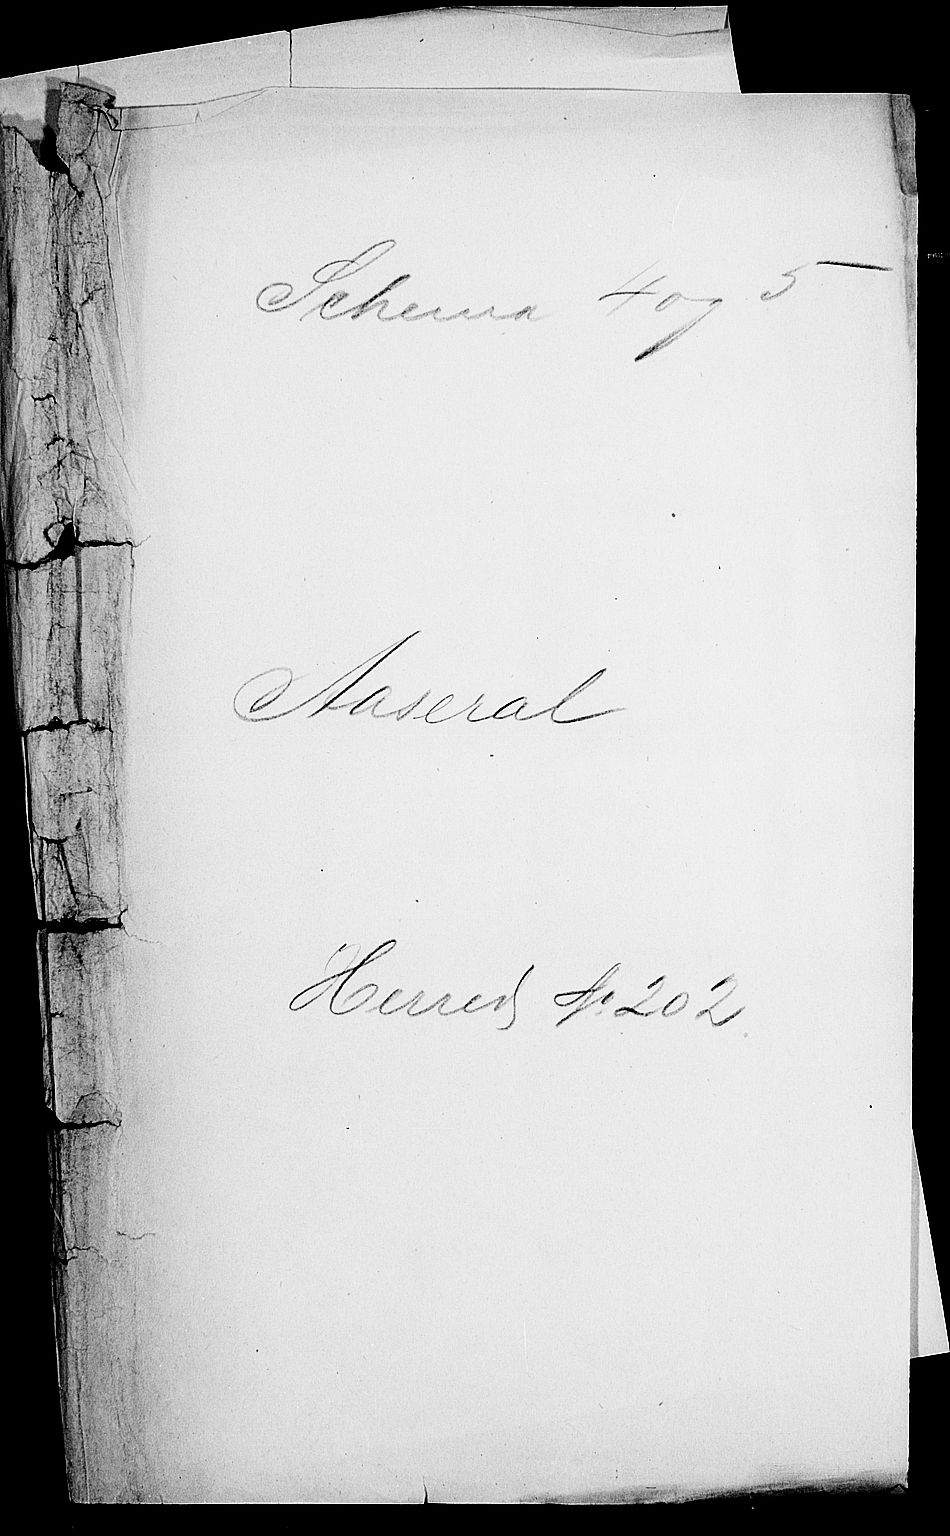 Schema 4 og 5
Aaseral
Herred No 202.